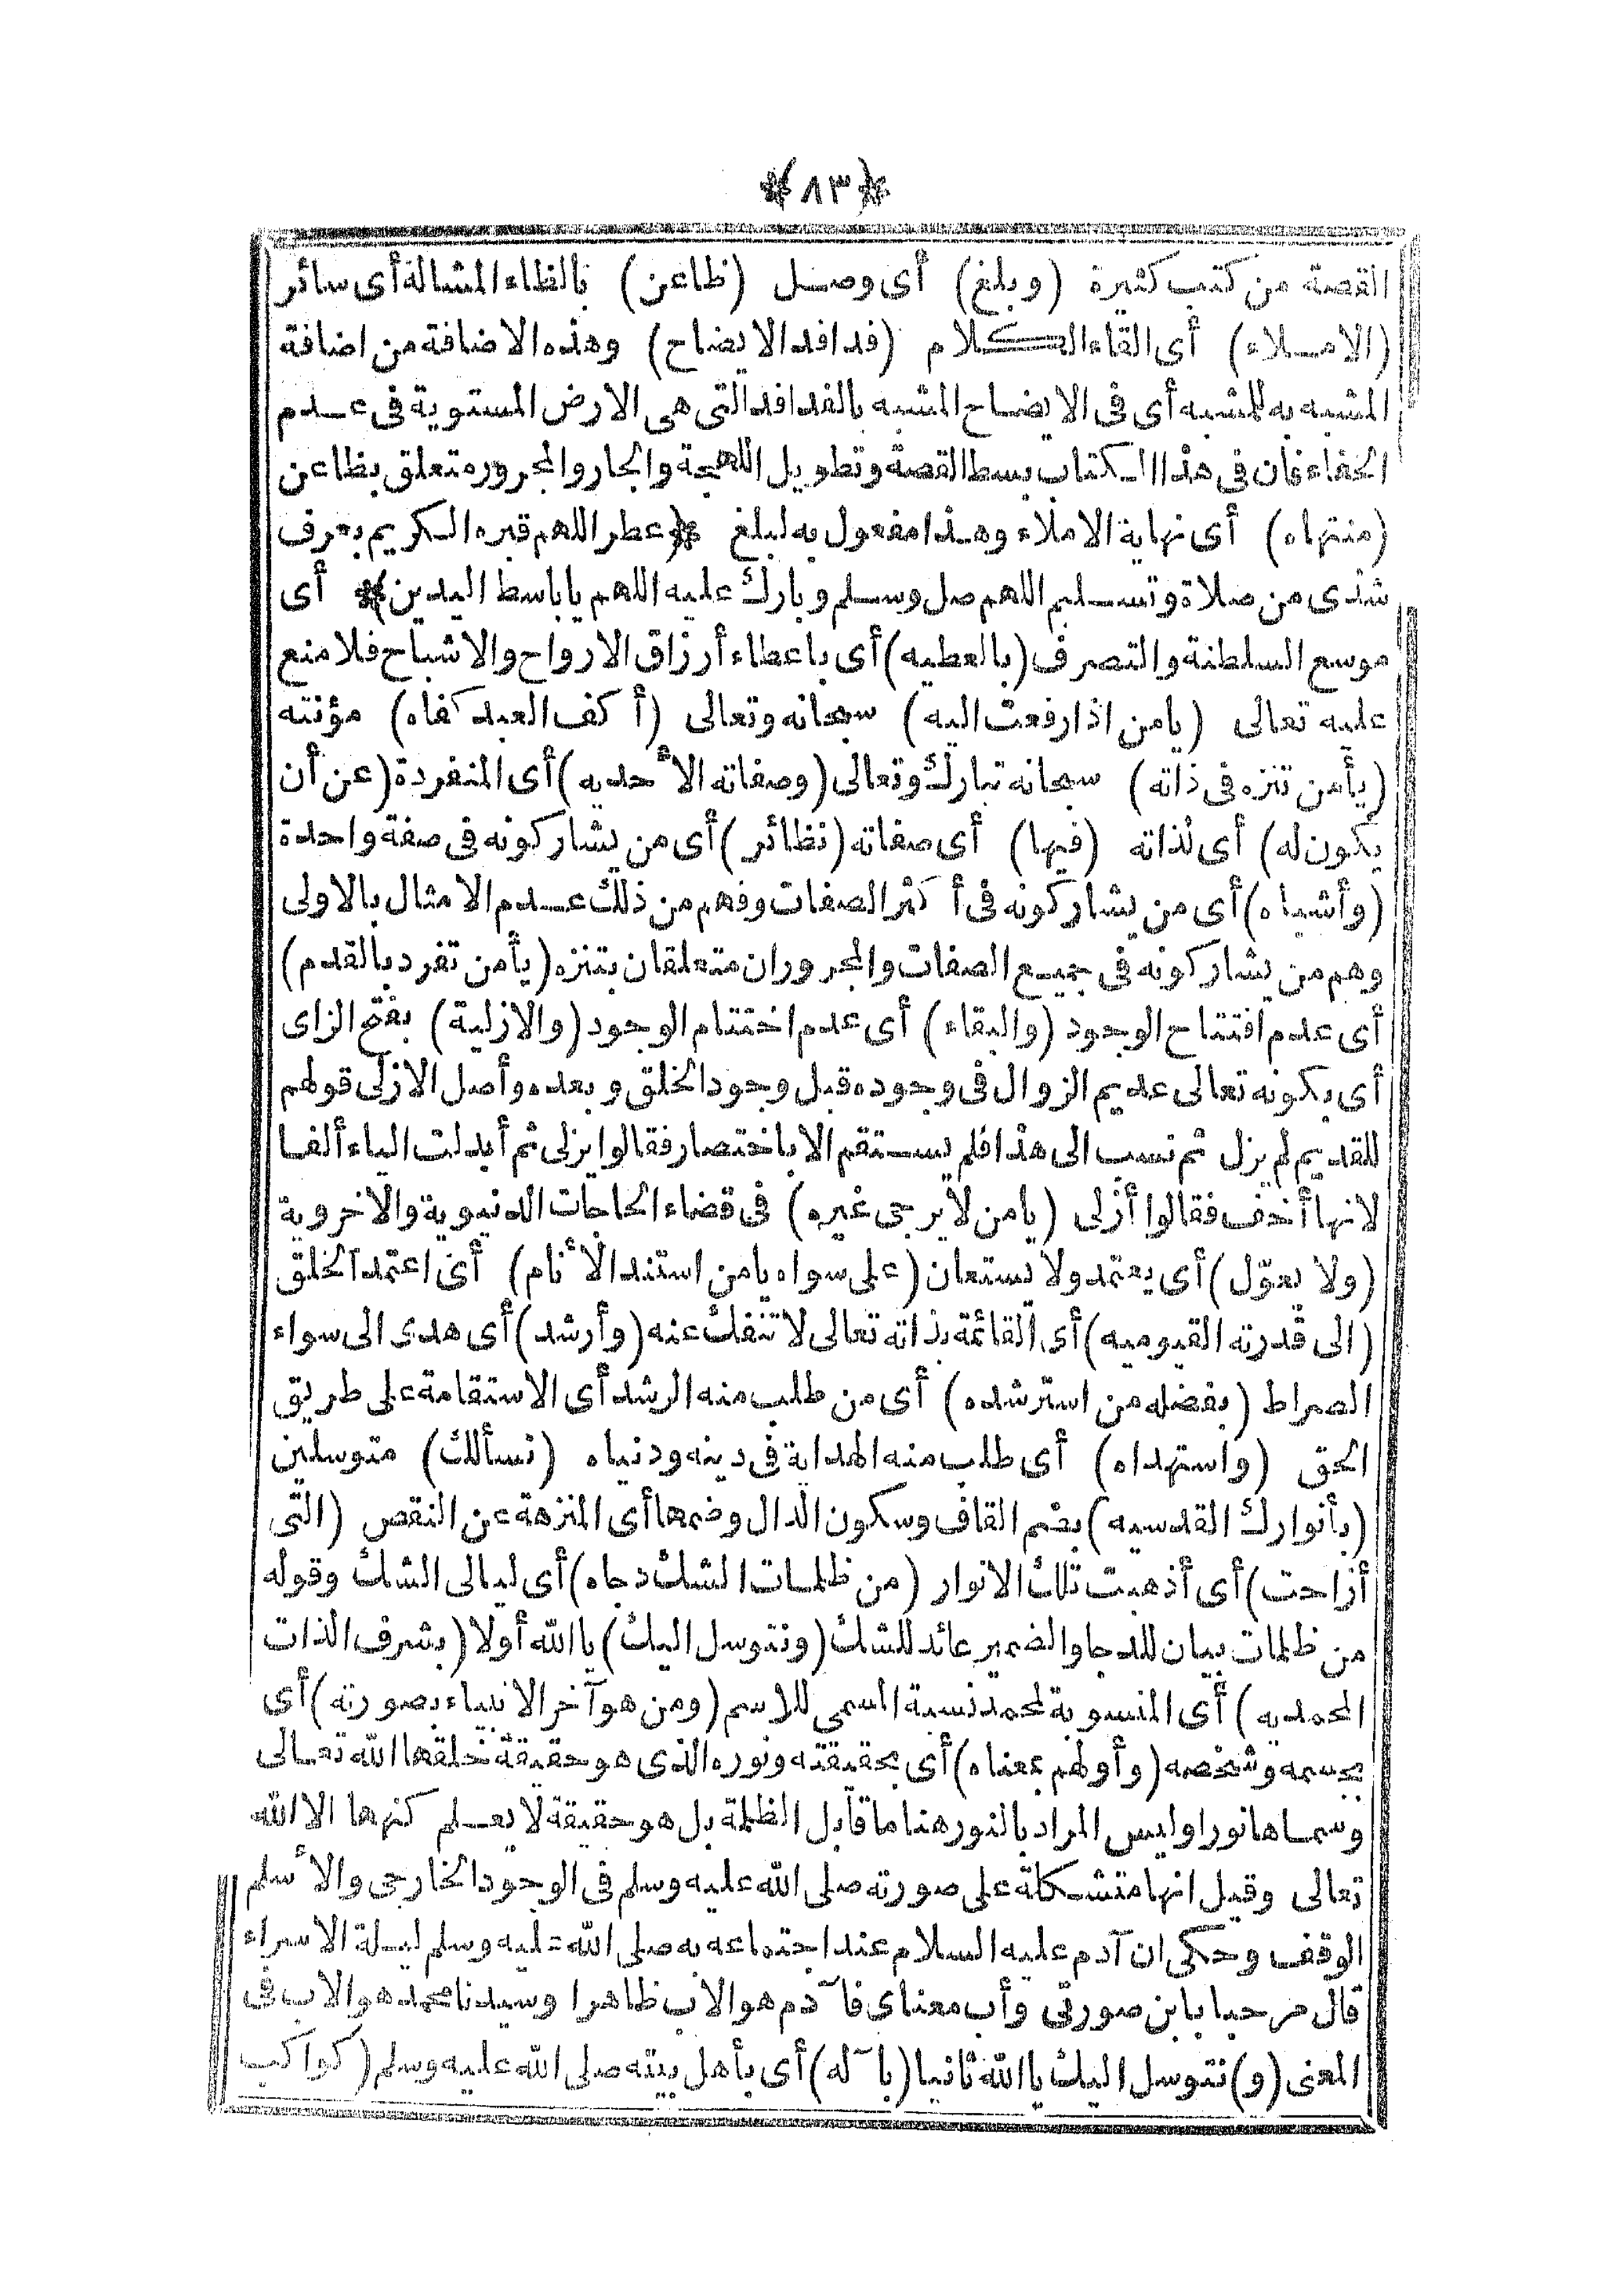 ﴿٨٣﴾
القصة من كتب كثيرة (وبلغ) أى وصل (ظاعن) بالظاء المشالة أى سائر
(الاملاء) أى القاء الكلام (فدافد الايضاح) وهذه الاضافة من اضافة
المشبه به للمشبه أى فى الايضاح المشبه بالفدافد التى هى الارض المستوية فى عدم
الخفاء فان فى هذا الكتاب بسط القصة وتطويل اللهجة والجار والمجرور متعلق بظاعن
(منتهاه) أى نهاية الاملاء وهذا مفعول به لبلغ ﴿عطر اللهم قبره الكريم بعرف
شذى من صلاة وتسليم اللهم صل وسلم وبارك عليه اللهم ياباسط اليدين﴾ أى
موسع السلطنة والتصرف (بالعطيه) أى باعطاء أرزاق الارواح والاشباح فلا منع
عليه تعالى (يامن اذا رفعت اليه) سبحانه وتعالى (أكف العبد كفاه) مؤنته
(يأمن تنزه فى ذاته) سبحانه تبارك وتعالى (وصفاته الأحديه) أى المنفردة (عن أن
يكون له) أى لذاته (فيها) أى صفاته (نظائر) أى من يشاركونه فى صفة واحدة
(وأشباه) أى من يشاركونه فى أكثر الصفات وفهم من ذلك عدم الامثال بالاولى
وهم من يشاركونه فى جميع الصفات والمجروران متعلقان بتنزه (يأمن تفرد بالقدم)
أى عدم افتتاح الوجود (والبقاء) أى عدم اختتام الوجود (والازلية) بفتح الزاى
أى بكونه تعالى عديم الزوال فى وجوده قبل وجود الخلق وبعده وأصل الازلى قولهم
للقديم لم يزل ثم نسب الى هذا فلم يستقم الا باختصار فقالوا يزلى ثم أبدلت الياء ألفا
لانها أخف فقالوا أزلى (يامن لا يرجى غيره) فى قضاء الحاجات الدنيوية والاخروية
(ولا يعوّل) أى يعتمد ولا يستعان (على سواه يامن استند الأنام) أى اعتمد الخلق
(الى قدرته القيوميه) أى القائمة بذاته تعالى لا تنفك عنه (وأرشد) أى هدى الى سواء
الصراط (بفضله من استرشده) أى من طلب منه الرشد أى الاستقامة على طريق
الحق (واستهداه) أى طلب منه الهداية فى دينه ودنياه (نسألك) متوسلين
(بأنوارك القدسيه) بضم القاف وسكون الدال وضمها أى المنزهة عن النقص (التى
أزاحت) أى أذهبت تلك الانوار (من ظلمات الشك دجاه) أى ليالى الشك وقوله
من ظلمات بيان للدجا والضمير عائد للشك (ونتوسل اليك) يا الله أولا (بشرف الذات
المحمديه) أى المنسوبة لمحمد نسبة المسمى للاسم (ومن هو آخر الانبياء بصورته) أى
بجسمه وشخصه (وأولهم بمعناه) أى بحقيقته ونوره الذى هو حقيقة خلقها الله تعالى
وسماها نورا وليس المراد بالنور هنا ما قابل الظلمة بل هو حقيقة لا يعلم كنهها الا الله
تعالى وقيل انها متشكلة على صورته صلى الله عليه وسلم فى الوجود الخارجى والأسلم
الوقف وحكى ان آدم عليه السلام عند اجتماعه به صلى الله عليه وسلم ليلة الاسراء
قال مرحبا بابن صورتى وأب معناى فآدم هو الاب ظاهرا وسيدنا محمد هو الاب فى
المعنى (و) نتوسل اليك يا الله ثانيا (بآله) أى بأهل بيته صلى الله عليه وسلم (كواكب